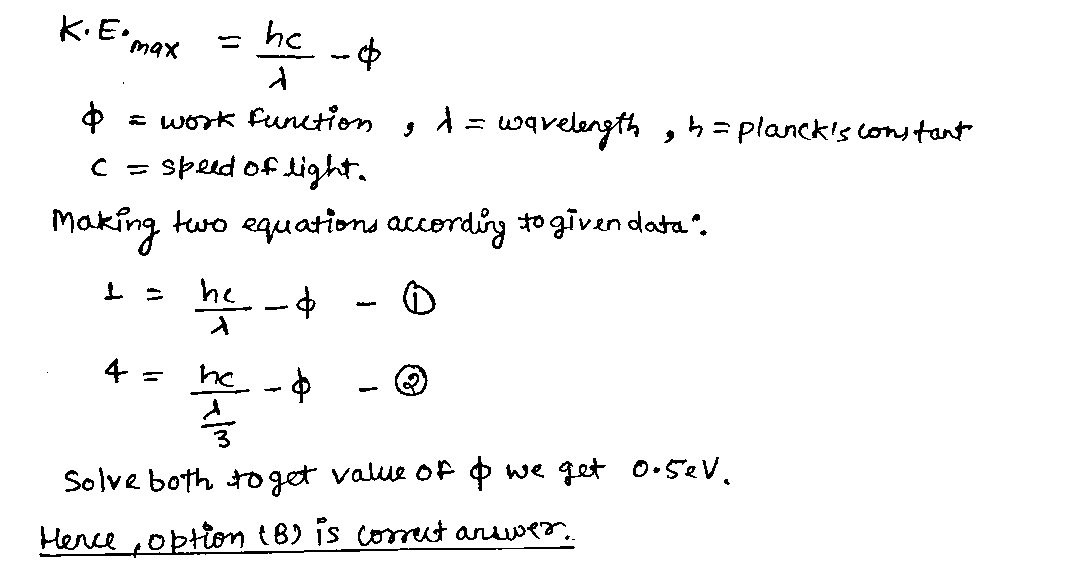 K.E.max = hc/λ - ϕ
ϕ = work function , λ = wavelength , h = planck's constant
c = speed of light.
Making two equations according to given data:
1 = hc/λ - ϕ - ①
4 = hc/(λ/3) - ϕ - ②
Solve both to get value of ϕ we get 0.5eV.
Hence , option (B) is correct answer.